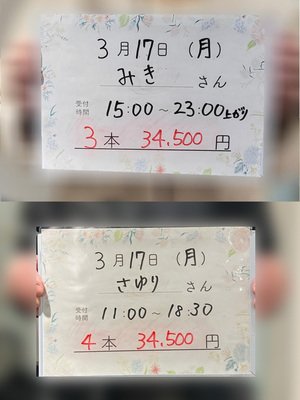 3月17日(月)
みき さん
受付時間 15:00~23:00上がり
3本 34.500円
3月17日(月)
さゆり さん
受付時間 11:00~18:30
4本 34.500円